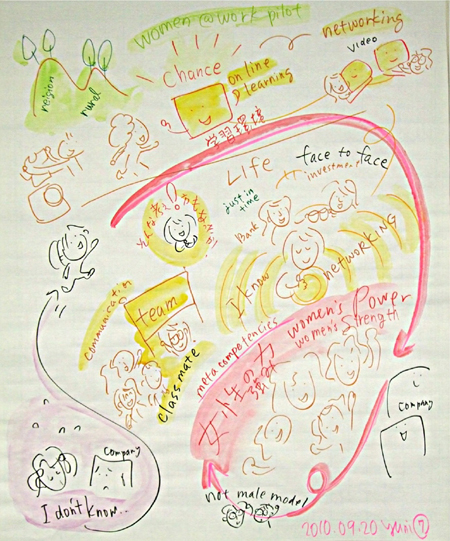 women@work pilot
networking
video
Chance
on line
learning
region
rural
学習環境
LIFE
face to face
investment
just in
time
Bank
I know
networking
communication
team
classmate
meta competencies
women's Power
women's strength
女性の力
company
company
I don't know..
not male model
2010.09.20 yuri 7